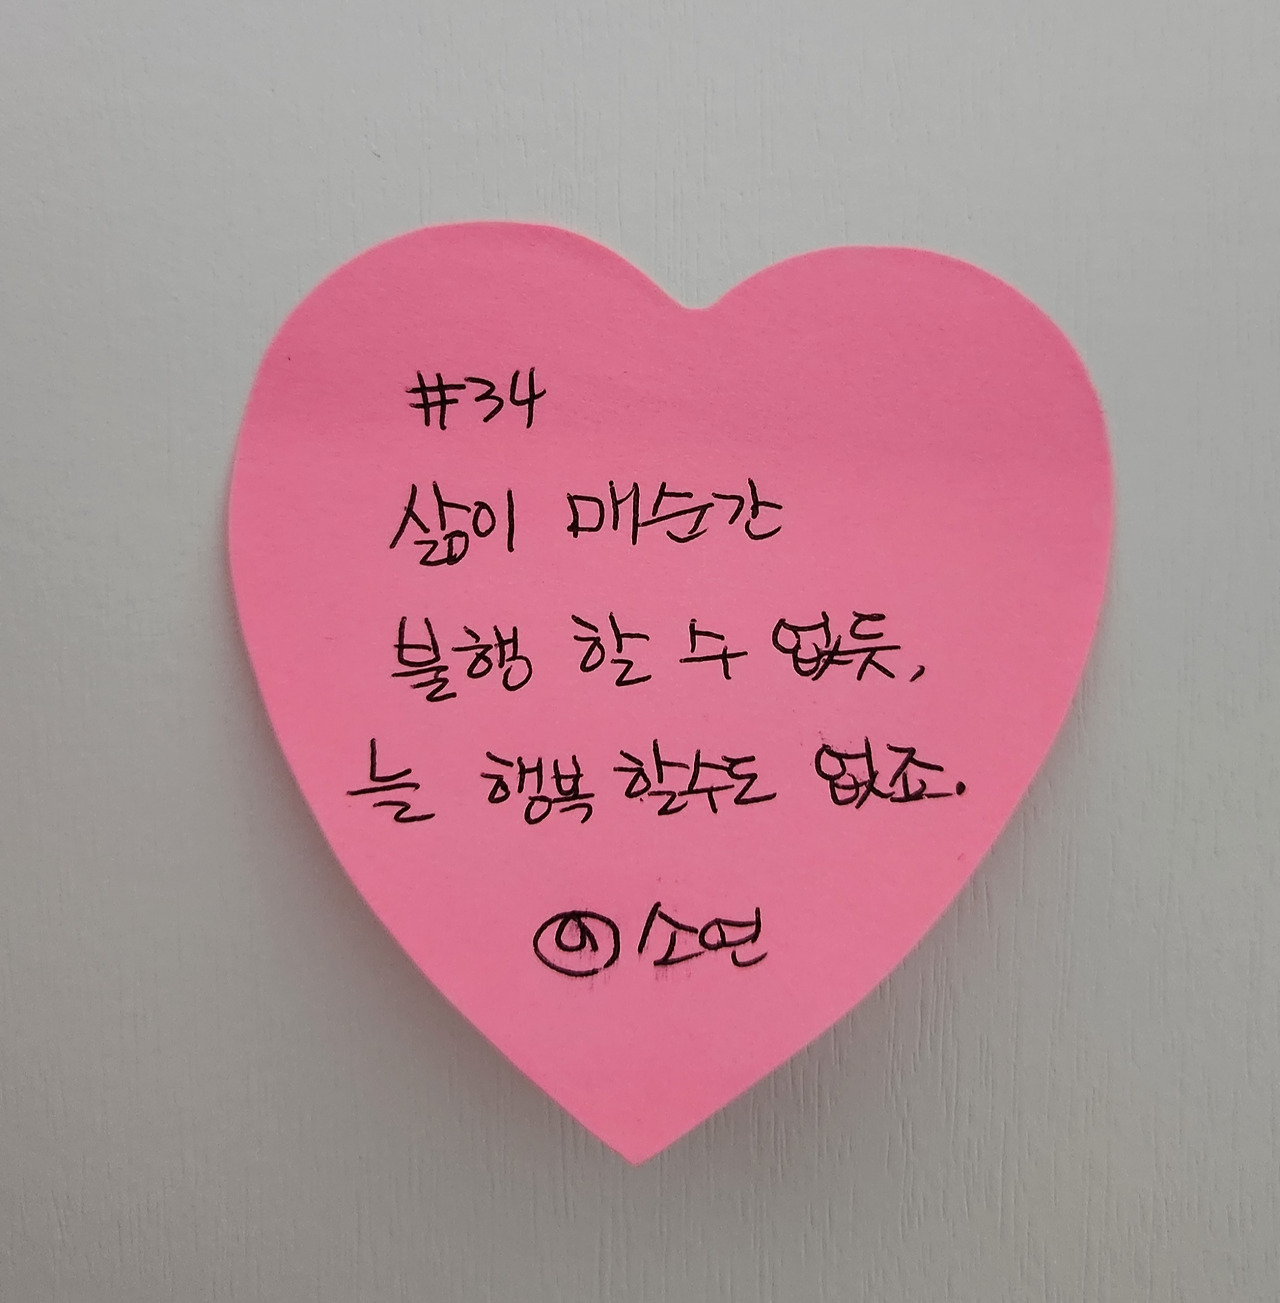 #34
삶이 매순간
불행 할 수 없듯,
늘 행복 할수도 없죠.
소연